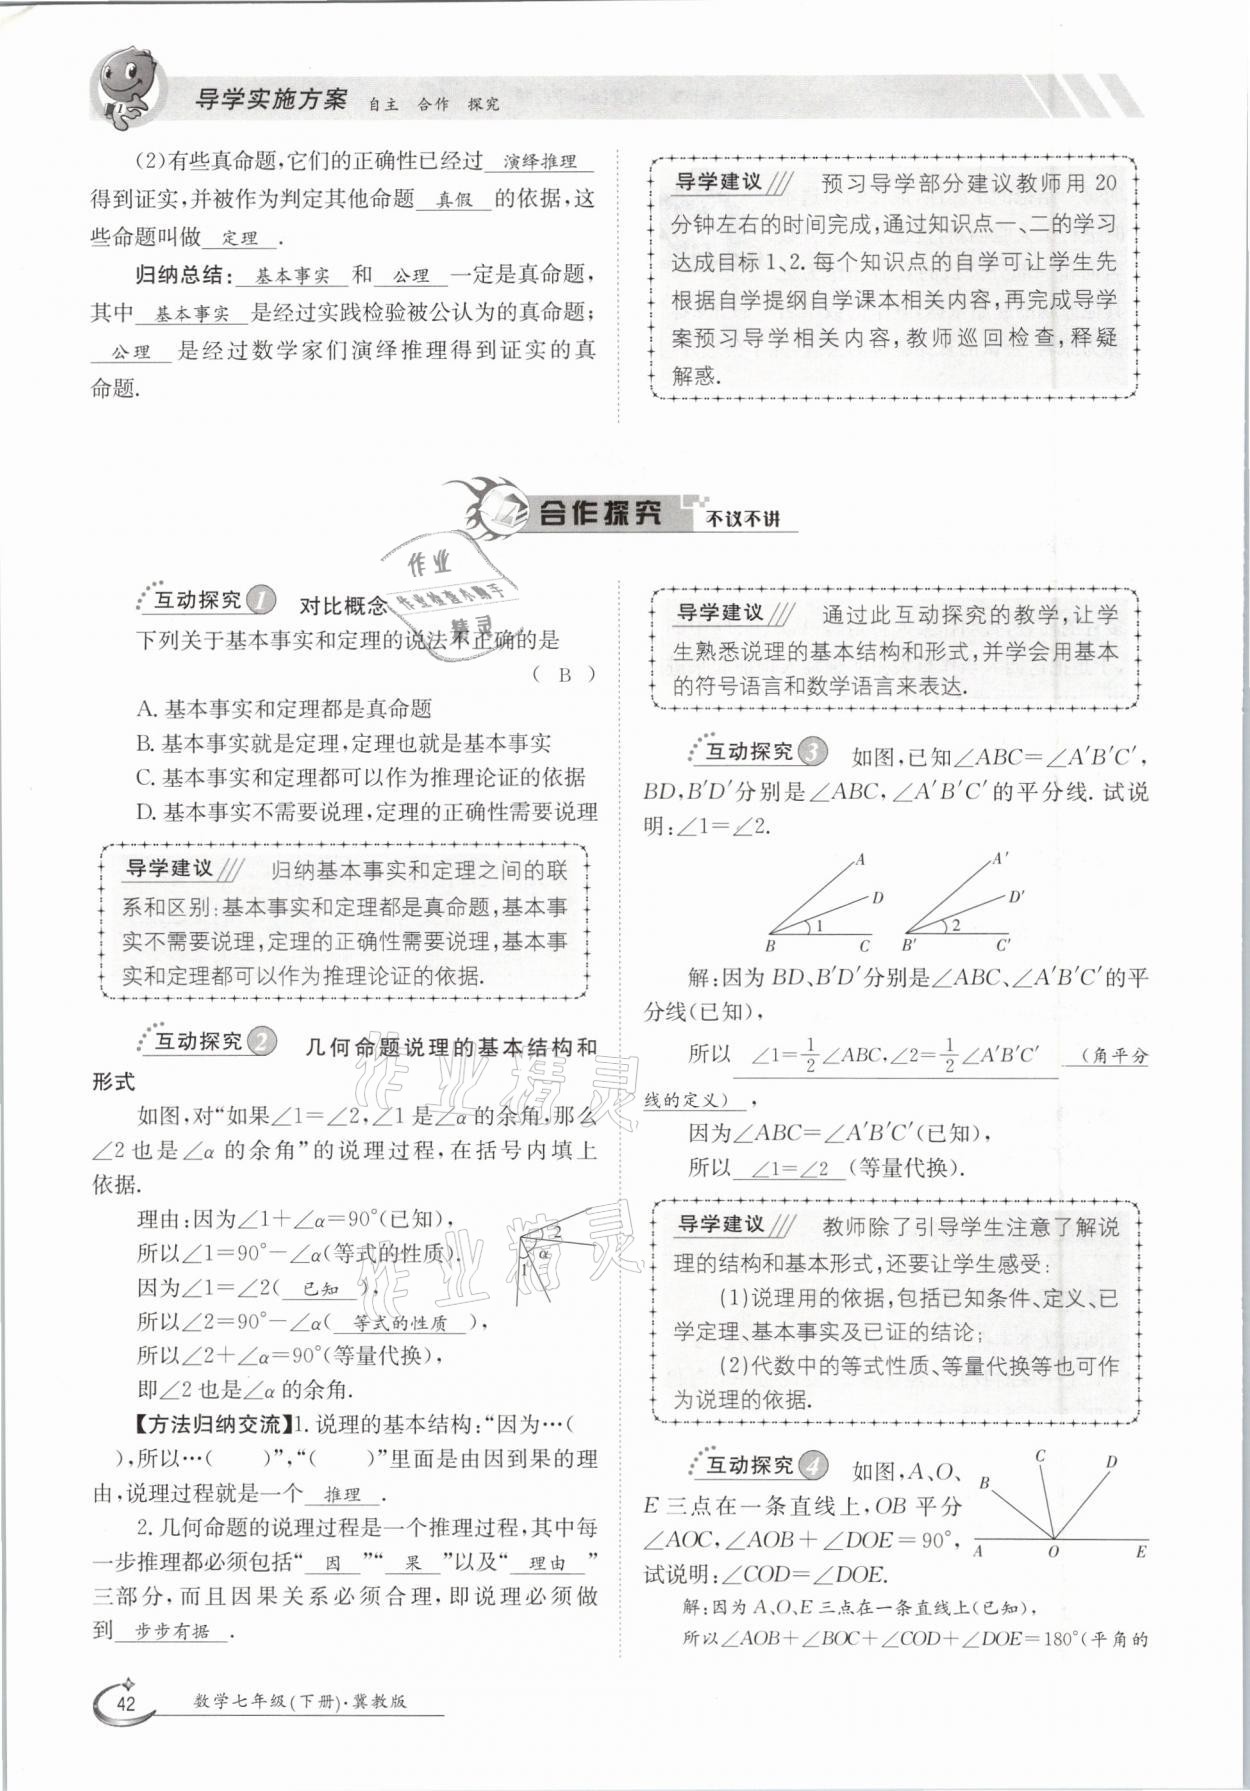 导学实施方案 自主 合作 探究
(2)有些真命题,它们的正确性已经过 演绎推理
得到证实,并被作为判定其他命题 真假 的依据,这
些命题叫做 定理 .
归纳总结: 基本事实 和 公理 一定是真命题,
其中 基本事实 是经过实践检验被公认为的真命题;
公理 是经过数学家们演绎推理得到证实的真
命题.
导学建议 预习导学部分建议教师用 20
分钟左右的时间完成,通过知识点一、二的学习
达成目标1、2.每个知识点的自学可让学生先
根据自学提纲自学课本相关内容,再完成导学
案预习导学相关内容,教师巡回检查,释疑
解惑.
合作探究 不议不讲
互动探究1 对比概念
下列关于基本事实和定理的说法不正确的是
( B )
A. 基本事实和定理都是真命题
B. 基本事实就是定理,定理也就是基本事实
C. 基本事实和定理都可以作为推理论证的依据
D. 基本事实不需要说理,定理的正确性需要说理
导学建议 归纳基本事实和定理之间的联
系和区别:基本事实和定理都是真命题,基本事
实不需要说理,定理的正确性需要说理,基本事
实和定理都可以作为推理论证的依据.
互动探究2 几何命题说理的基本结构和
形式
如图,对“如果∠1=∠2,∠1是∠α的余角,那么
∠2也是∠α的余角”的说理过程,在括号内填上
依据.
理由:因为∠1+∠α=90°(已知),
所以∠1=90°-∠α(等式的性质).
因为∠1=∠2( 已知 ),
所以∠2=90°-∠α( 等式的性质 ),
所以∠2+∠α=90°(等量代换),
即∠2也是∠α的余角.
2
α
1
【方法归纳交流】1.说理的基本结构:“因为…(
),所以…( )”,“( )”里面是由因到果的理
由,说理过程就是一个 推理 .
2.几何命题的说理过程是一个推理过程,其中每
一步推理都必须包括“ 因 ”“ 果 ”以及“ 理由 ”
三部分,而且因果关系必须合理,即说理必须做
到 步步有据 .
导学建议 通过此互动探究的教学,让学
生熟悉说理的基本结构和形式,并学会用基本
的符号语言和数学语言来表达.
互动探究3 如图,已知∠ABC=∠A′B′C′,
BD,B′D′分别是∠ABC,∠A′B′C′的平分线.试说
明:∠1=∠2.
A
D
1
B C
A′
D′
2
B′ C′
解:因为BD、B′D′分别是∠ABC、∠A′B′C′的平
分线(已知),
所以 ∠1=1/2∠ABC,∠2=1/2∠A′B′C′ (角平分
线的定义) ,
因为∠ABC=∠A′B′C′(已知),
所以 ∠1=∠2 (等量代换).
导学建议 教师除了引导学生注意了解说
理的结构和基本形式,还要让学生感受:
(1)说理用的依据,包括已知条件、定义、已
学定理、基本事实及已证的结论;
(2)代数中的等式性质、等量代换等也可作
为说理的依据.
互动探究4 如图,A、O、
E三点在一条直线上,OB平分
∠AOC,∠AOB+∠DOE=90°,
试说明:∠COD=∠DOE.
C D
B
A O E
解:因为A、O、E三点在一条直线上(已知),
所以∠AOB+∠BOC+∠COD+∠DOE=180°(平角的
42 数学七年级(下册)·冀教版
作业
作业检查小助手
精灵
作业精灵
作业精灵